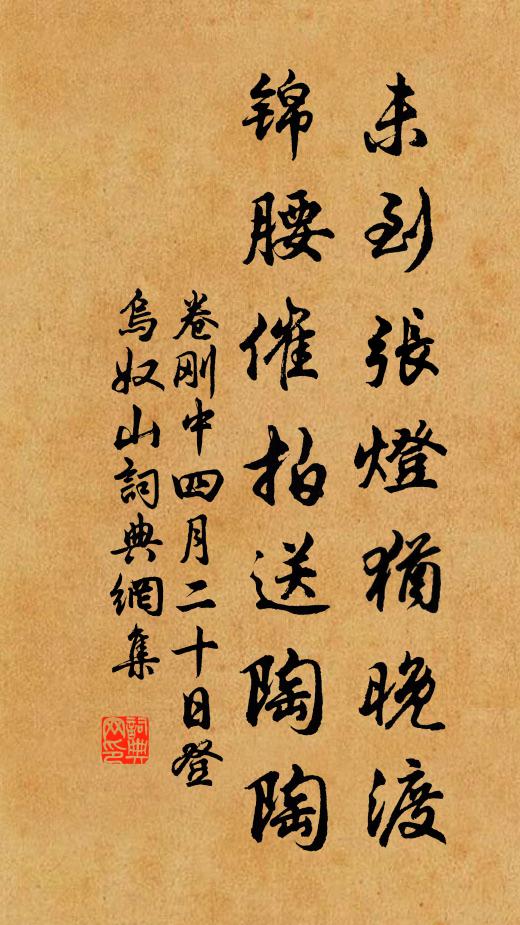 未到張燈猶晚渡
錦腰催拍送陶陶
卷刚中四月二十日登
烏奴山詞典網集
詞典网印